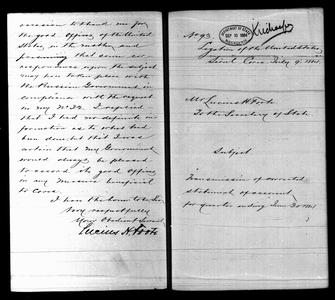 occasion to thank me for
the good offices of the United
States, in the matter, and
presuming that some cor-
respondence upon the subject
may have taken place with
the Russian Government in
compliance with the request
in my No. 
that I had no definite in-
formation as to what had
been done but that I was
my Government
would always be pleased
to its good offices
in any measure beneficial
to Corea.
I have the honor to be Sir
Very respectfully
Your Obedient Servant
Lucius H. Foote
No. 93
Legation of the United States
Seoul Corea July 9, 1884
DEPARTMENT OF STATE
SEP 10 1884
Mr Lucius H. Foote
To the Secretary of State.
Subject
Transmission of
statement of account
for quarter ending June 30 1884